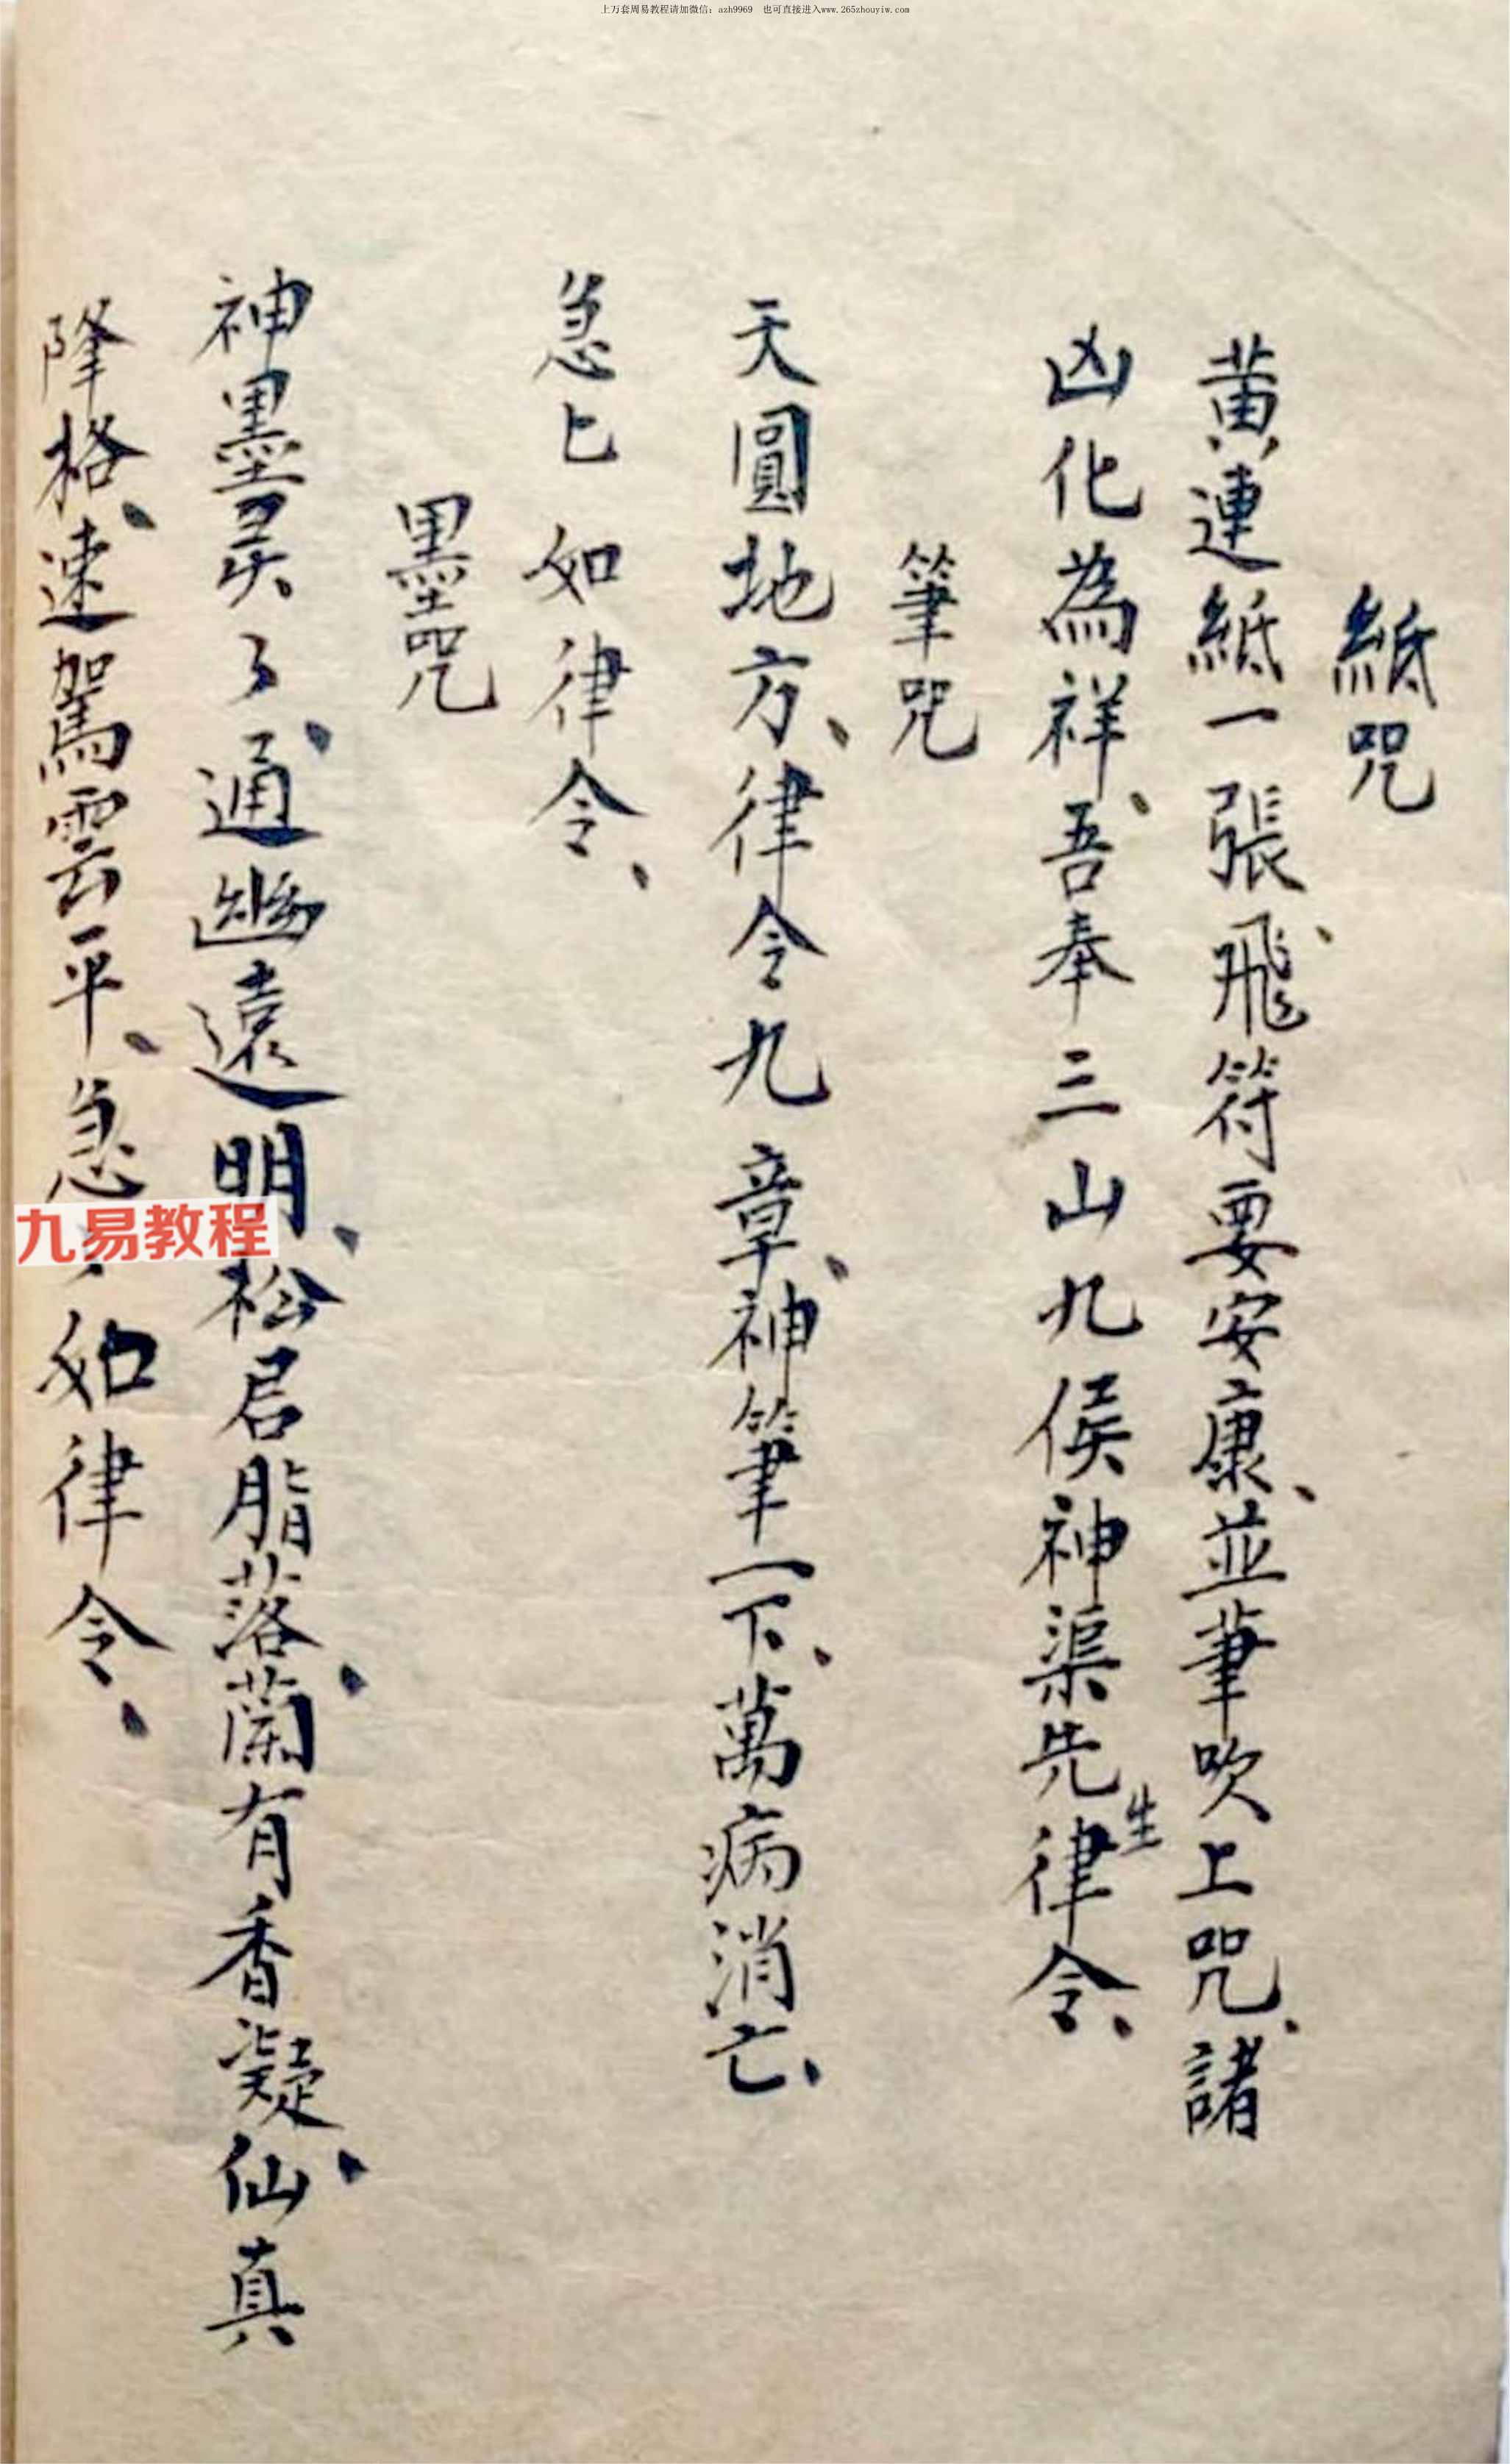 上万套周易教程请加微信：azh9969　也可直接进入www.265zhouyiw.com
紙咒
黄連紙一張、飛符要安康、並筆吹上咒、諸
凶化為祥、吾奉三山九侯神渠先生律令、
筆咒
天圓地方、律令九章、神筆一下、萬病消亡、
急匕如律令、
墨咒
神墨灵了、通幽遠明、松君脂落、蘭有香凝、仙真
降格、速駕雲平、急 如律令、
九易教程